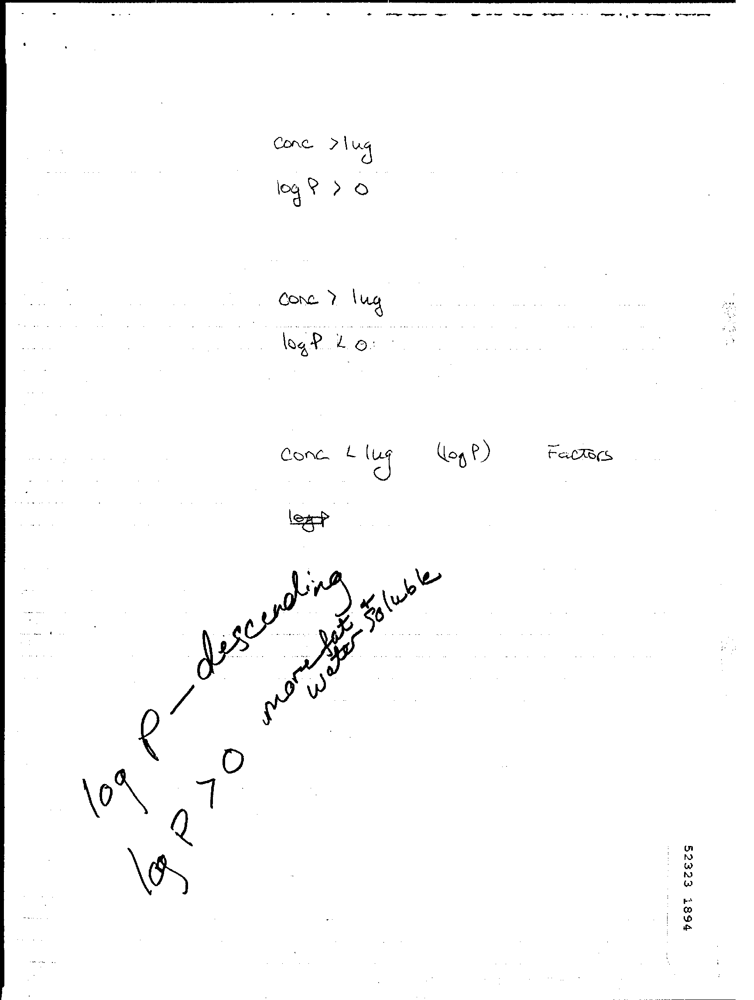 conc > 1ug
log P > 0
conc > 1ug
log P < 0
conc < 1ug (log P) Factors
log P
log P — descending
log P > 0 more fat +
water soluble
52323 1894